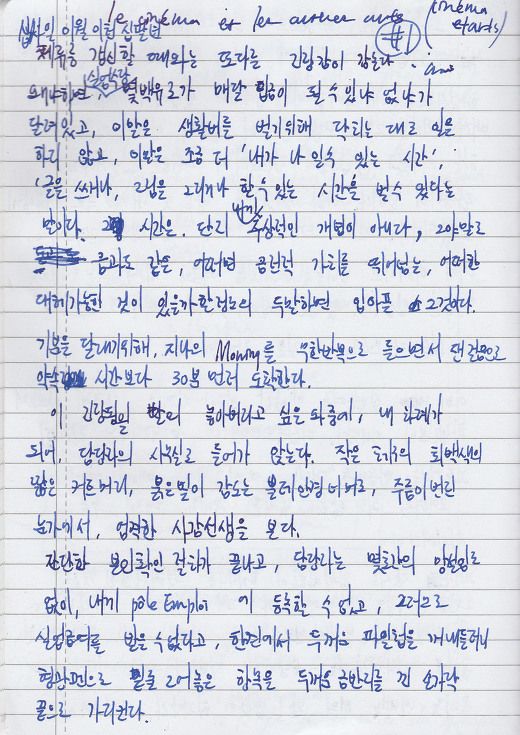 le cinéma et les autres arts
#1
(cinéma et arts)
체류증 갱신할 때와는 또다른 긴장감이 감돈다.
왜냐하면, 실업수당 몇백유로가 매달 입금이 될 수 있냐 없냐가
달려있고, 이말은 생활비를 벌기위해 닥치는 대로 일을
하지 않고, 이말은 조금 더 '내가 나 일수 있는 시간',
'글을 쓰거나, 그림을 그리거나 할 수 있는 시간을 벌수 있다는
말이다. 시간은 단지 추상적인 개념이 아니다, 그야말로
금과도 같은, 어쩌면 금전적 가치를 뛰어넘는, 어떠한
대체가능한 것이 있을까할정도의 두말하면 입아플 그것이다.
기분을 달래기위해, 지나의 Mommy를 무한반복으로 들으면서
약속 시간보다 30분 먼저 도착한다.
이 긴장됨의 놓아버리고 싶은 와중에, 내 차례가
되어, 담당자의 사무실로 들어가 앉는다. 작은 체구의 회백색의
짧은 커트머리, 붉은빛이 감도는 뿔테안경 너머로, 주름이 번진
눈가에서, 엄격한 사감선생을 본다.
간단한 본인확인 절차가 끝나고, 담당자는 몇초간의 망설임도
없이, 내게 pôle Emploi 에 등록할 수 없고, 그러므로
실업급여를 받을 수 없다고, 한켠에서 두꺼운 파일첩을 꺼내들더니
형광펜으로 그어놓은 항목을 두꺼운 금반지를 낀 손가락
끝으로 가리킨다.